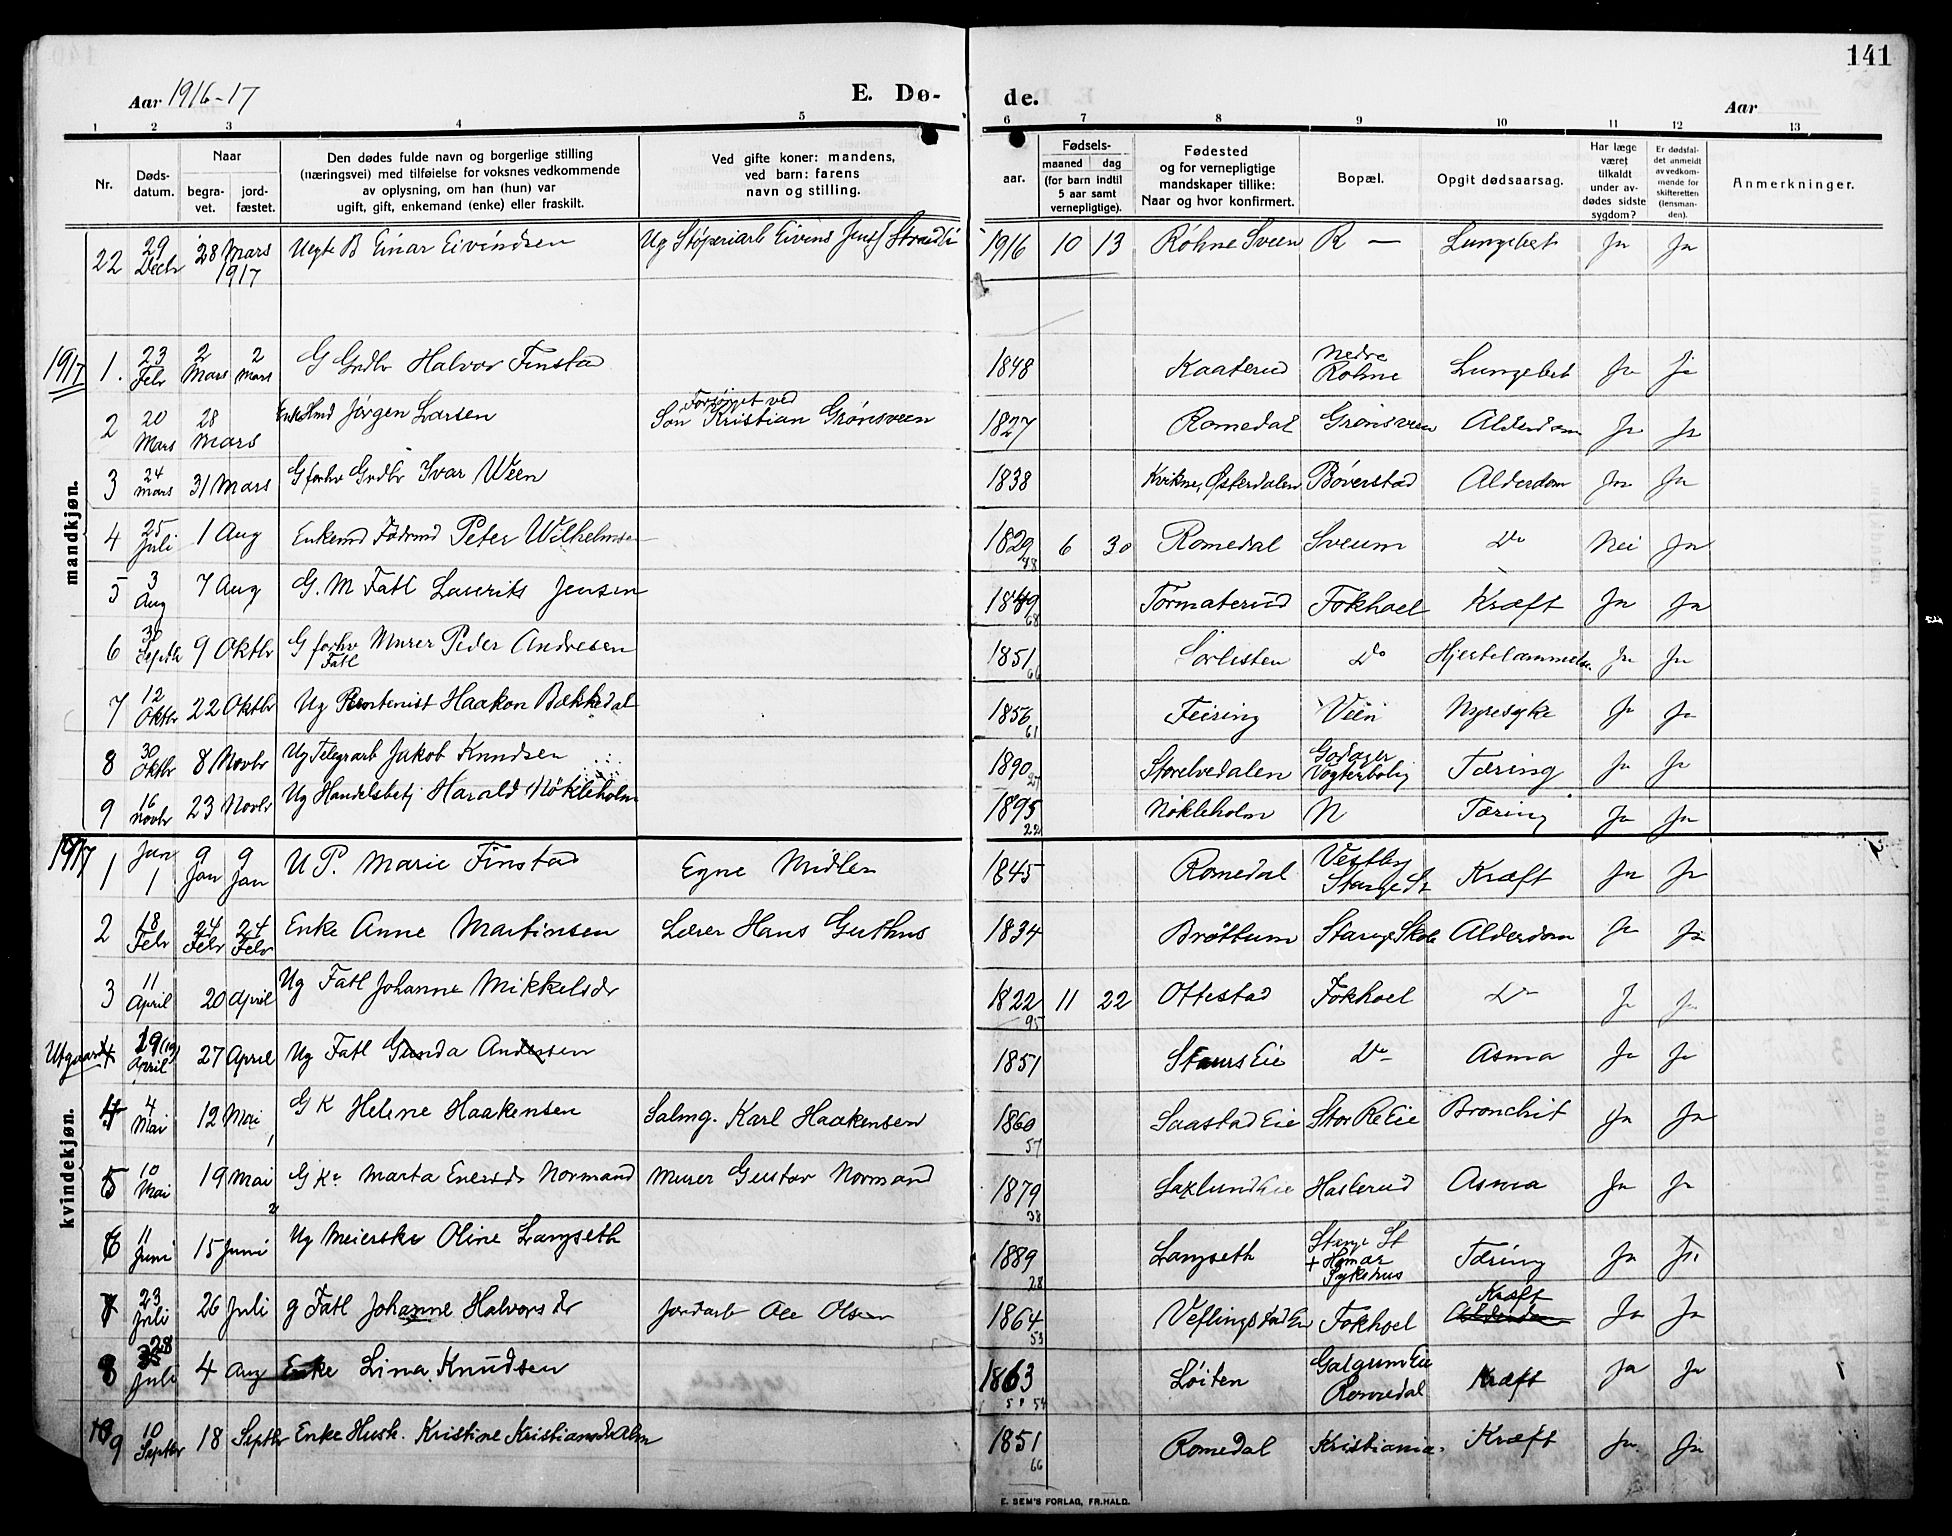 141
Aar 1916-17 E. Dø- de. Aar
1 2 3 4 5 6 7 8 9 10 11 12 13
Nr. Døds-datum. Naar begra-vet. jord-fæstet. Den dødes fulde navn og borgerlige stilling (næringsvei) med tilføielse for voksnes vedkommende av oplysning, om han (hun) var ugift, gift, enkemand (enke) eller fraskilt. Ved gifte koner: mandens, ved barn: farens navn og stilling. aar. Fødsels- maaned dag (for barn indtil 5 aar samt vernepligtige). Fødested og for vernepligtige mandskaper tillike: Naar og hvor konfirmert. Bopæl. Opgit dødsaarsag. Har læge været tilkaldt under av-dødes sidste sygdom? Er dødsfal-det anmeldt av vedkom-mende for skifteretten (lensman-den). Anmerkninger.
22 29 Decbr 28 Mars 1917 Uegte B Einar Eivindsen Ug Støperiarb Eivind 1916 10 13 Røhne Sveen R — Lungebet Ja Ja
mandkjøn.
1917 1. 23 Febr 2 Mars 2 Mars G Grdbr Halvor Finstad 1848 Kaaterud Nedre Rohne Lungebet Ja Ja
2 20 Mars 28 Mars Enkemd Jørgen Larsen Forsørget ved Søn Kristian Grønsveen 1827 Romedal Grønsveen Alderdom Ja Ja
3 24 Mars 31 Mars G forhv Grdbr Ivar Wéen 1838 Kvikne, Østerdalen Bøverstad Alderdom Ja Ja
4 25 Juli 1 Aug Enkemd Fødrmd Peter Wilhelmsen 1829 6 30 Romedal Sveum Do Nei Ja
5 3 Aug 7 Aug G. M Fatl Laurits Jensen 1849 68 Tormaterud Fokhoel Kræft Ja Ja
6 30 Septbr 9 Oktbr G forhv Murer Peder Andresen Fatl 1851 66 Sørlisten Do Ja Ja
7 12 Oktbr 22 Oktbr Ug Rentenist Haakon Bækkedal 1856 61 Feiring Véen Nyresyke Ja Ja
8 30 Oktbr 8 Novbr Ug Telegrarb Jakob Knudsen 1890 27 Storelvedalen Godager Vogterbolig Tæring Ja Ja
9 16 Novbr 23 Novbr Ug Handelsbetj Harald Nøkleholm 1895 22 Nøkleholm N Tæring Ja Ja
kvindekjøn.
1917 1 Jan 1 9 Jan 9 Jan U P. Marie Finstad Egne Midler 1845 Romedal Vestby Stange St Kræft Ja Ja
2 18 Febr 24 Febr 24 Febr Enke Anne Martinsen Lærer Hans Guthus 1834 Brøttum Stange Skole Alderdom Ja Ja
3 11 April 20 April Ug Fatl Johanne Mikkelsdr 1822 95 11 22 Ottestad Fokhoel Do Ja Ja
Utgaar 4 19 (19) April 27 April Ug Fatl Gunda Andersen 1851 Staurs Eie Do Asma Ja Ja
4 4 Mai 12 Mai G K Helene Haakensen Salmg. Karl Haakensen 1860 57 Saastad Eie Stor Re Eie Bronchit Ja Ja
5 10 Mai 19 Mai G Ke Marta Normand Murer Gustav Normand 1879 38 Saxlund Eie Haslerud Asma Ja Ja
6 11 Juni 15 Juni Ug Meierske Oline Langseth 1889 28 Langseth Stange St + Hamar Sykehus Tæring Ja Ja
7 23 Juli 26 Juli g Fatl Johanne Halvorsdr Jordarb Ole Olsen 1864 53 Veflingstad Eie Fokhoel Kræft Alderdom Ja Ja
8 28 Juli 4 Aug Enke Lina Knudsen 1863 54 Løiten Galgum Eie Romedal Kræft Ja Ja
9 10 Septbr 18 Septbr Enke Hush. Kristine Kristiansdr Alm 1851 66 Romedal Kristiania Kræft Ja Ja
E. SEM'S FORLAG, FR.HALD.